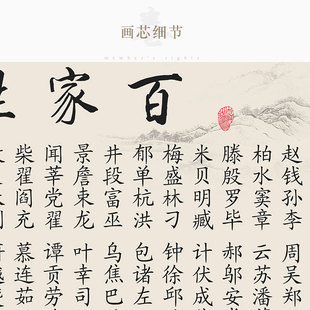 画芯细节
member's rights
百家姓
赵钱孙李
周吴郑
柏水窦章
云苏潘
滕殷罗毕
郝邬安
米贝明臧
计伏成
梅盛林刁
钟徐邱
郁单杭洪
包诸左
井段富巫
乌焦巴
景詹束龙
叶幸司
闻莘党翟
谭贡劳
柴瞿阎充
慕连茹